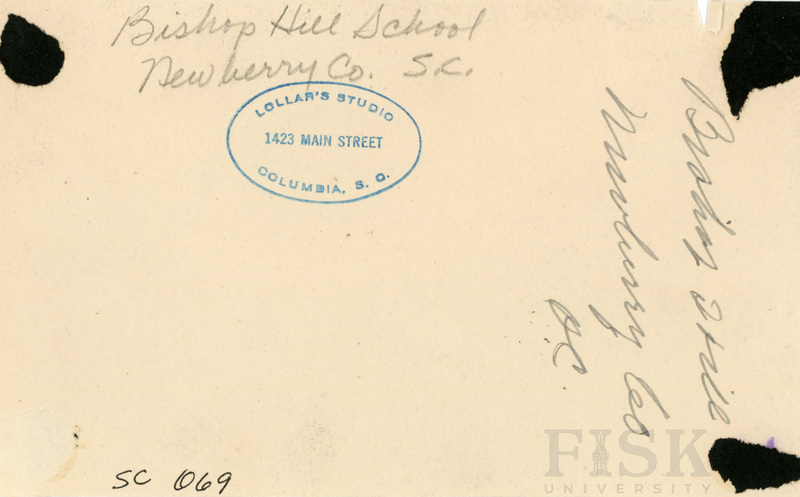 Bishop Hill School
Newberry Co. S.C.
LOLLAR'S STUDIO
1423 MAIN STREET
COLUMBIA, S. C.
Bishop Hill
Newberry Co
S.C.
SC 069
FISK
UNIVERSITY